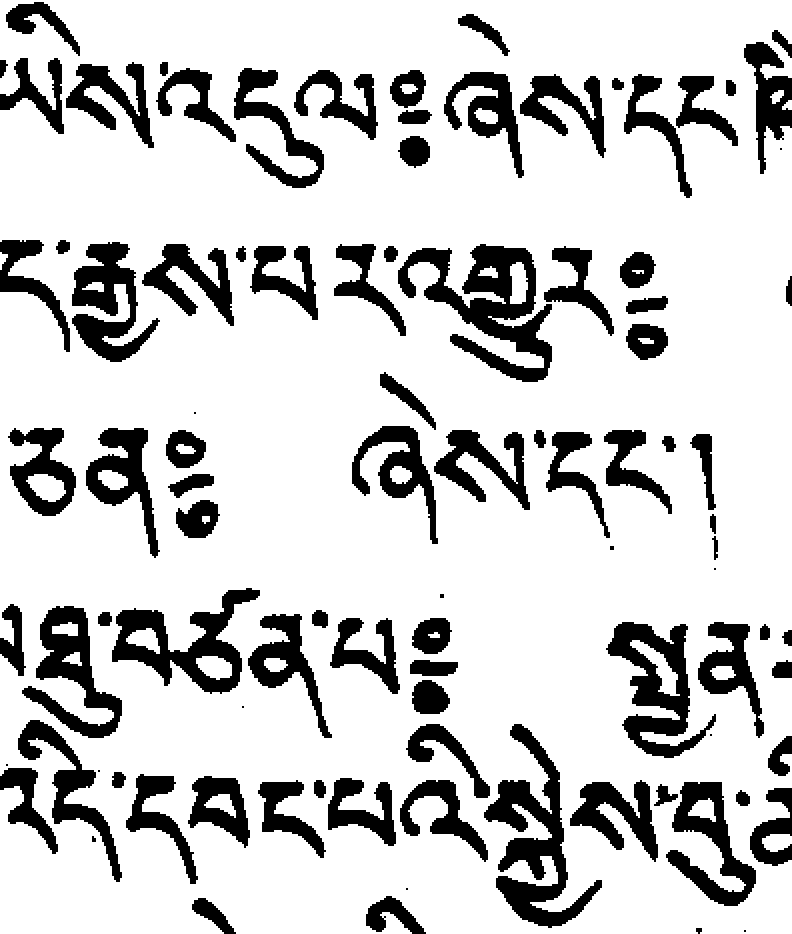 ཡིས་འདུལ༔ ཞེས་དང་
ང་རྒྱས་པར་འགྱུར༔
ཅན༔ ཞེས་དང་།
མཐུ་བཙན་པ༔ སྨན་
དི་དབང་པའི་སྐྱེས་བུ་